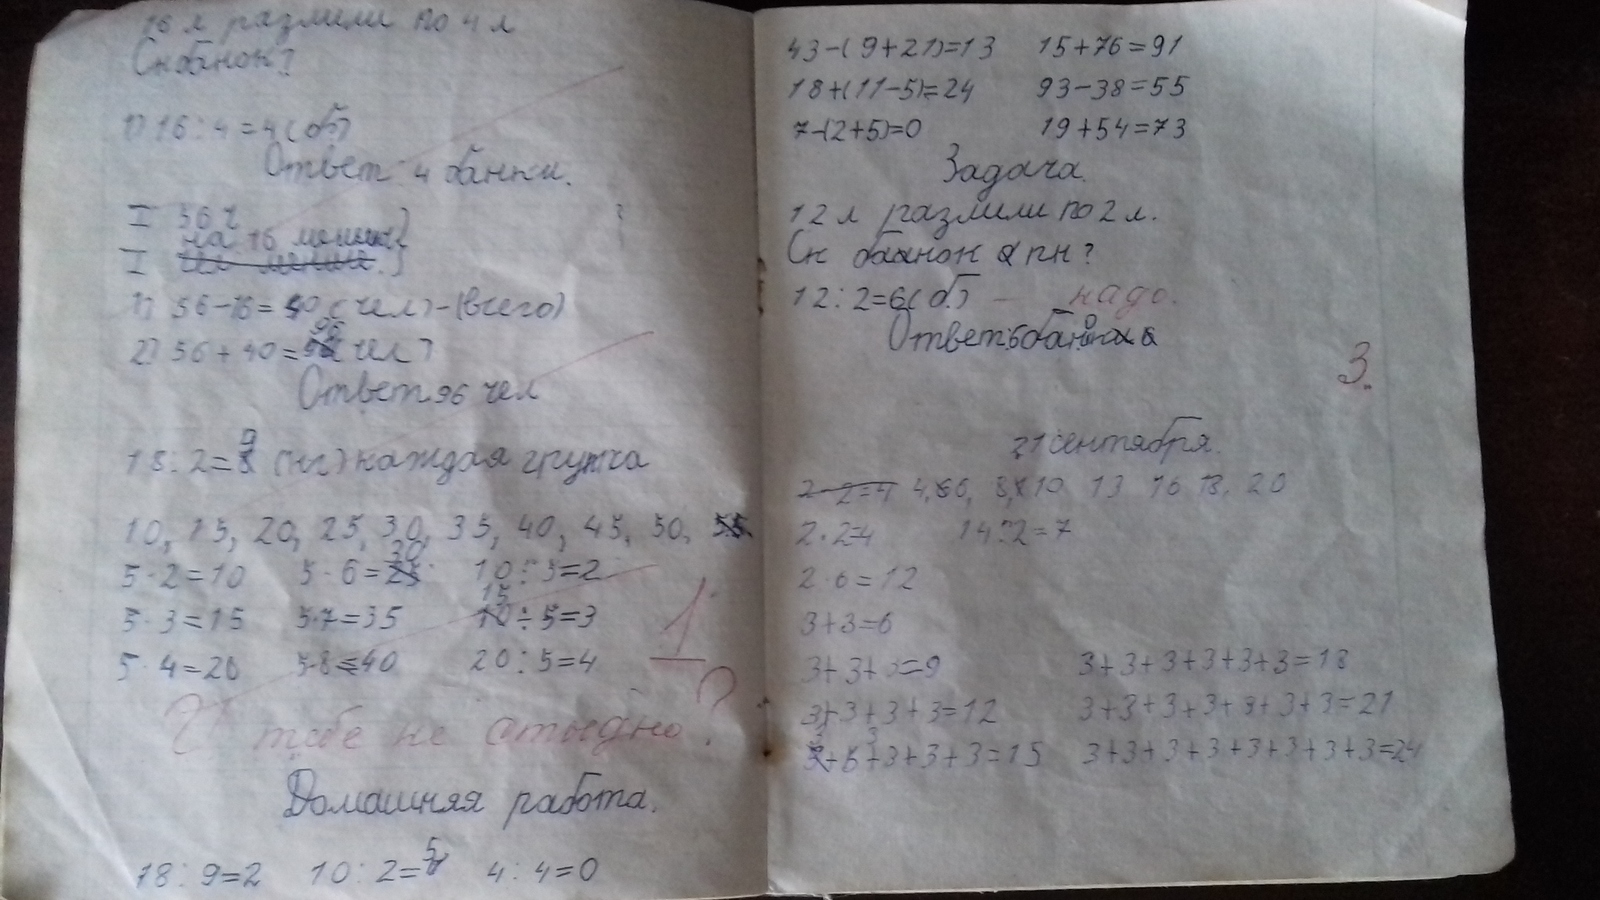 16 л разлили по 4 л
Ск банок?
1) 16 : 4 = 4 (б.)
Ответ 4 банки.
I 56 ч
на 16 меньше
I
1) 56 - 16 = 40 (чел) - (всего)
2) 56 + 40 = 96 (чел)
Ответ 96 чел
18 : 2 = 9 каждая группа
10, 15, 20, 25, 30, 35, 40, 45, 50, 55
5 · 2 = 10 5 · 6 = 30 10 : 5 = 2
5 · 3 = 15 5 · 7 = 35 15 ÷ 5 = 3
5 · 4 = 20 5 · 8 = 40 20 : 5 = 4
1
И тебе не стыдно?
Домашняя работа.
18 : 9 = 2 10 : 2 = 5 4 : 4 = 0
43 - (9 + 21) = 13 15 + 76 = 91
18 + (11 - 5) = 24 93 - 38 = 55
7 - (2 + 5) = 0 19 + 54 = 73
Задача.
12 л разлили по 2 л.
Ск банок пн?
12 : 2 = 6 (б.) — надо.
Ответ: 6 банок
3.
21 сентября.
2 · 2 = 4 4, 6, 8, 10 13 16 18, 20
2 · 2 = 4 14 : 2 = 7
2 · 6 = 12
3 + 3 = 6
3 + 3 + 3 = 9 3 + 3 + 3 + 3 + 3 + 3 = 18
3 + 3 + 3 + 3 = 12 3 + 3 + 3 + 3 + 3 + 3 + 3 = 21
3 + 3 + 3 + 3 + 3 = 15 3 + 3 + 3 + 3 + 3 + 3 + 3 + 3 = 24